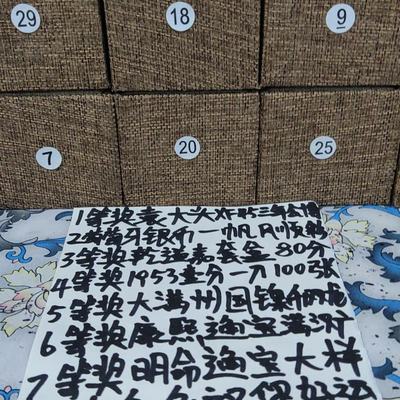 29 18 9
7 20 25
1等奖袁大头XF45三年
2等奖牙银币一帆风顺
3等奖乾隆 套盒80分
4等奖1953壹分一刀100张
5等奖大满州国镍币
6等奖康熙通宝满汉
7等奖明命通宝大样
好运